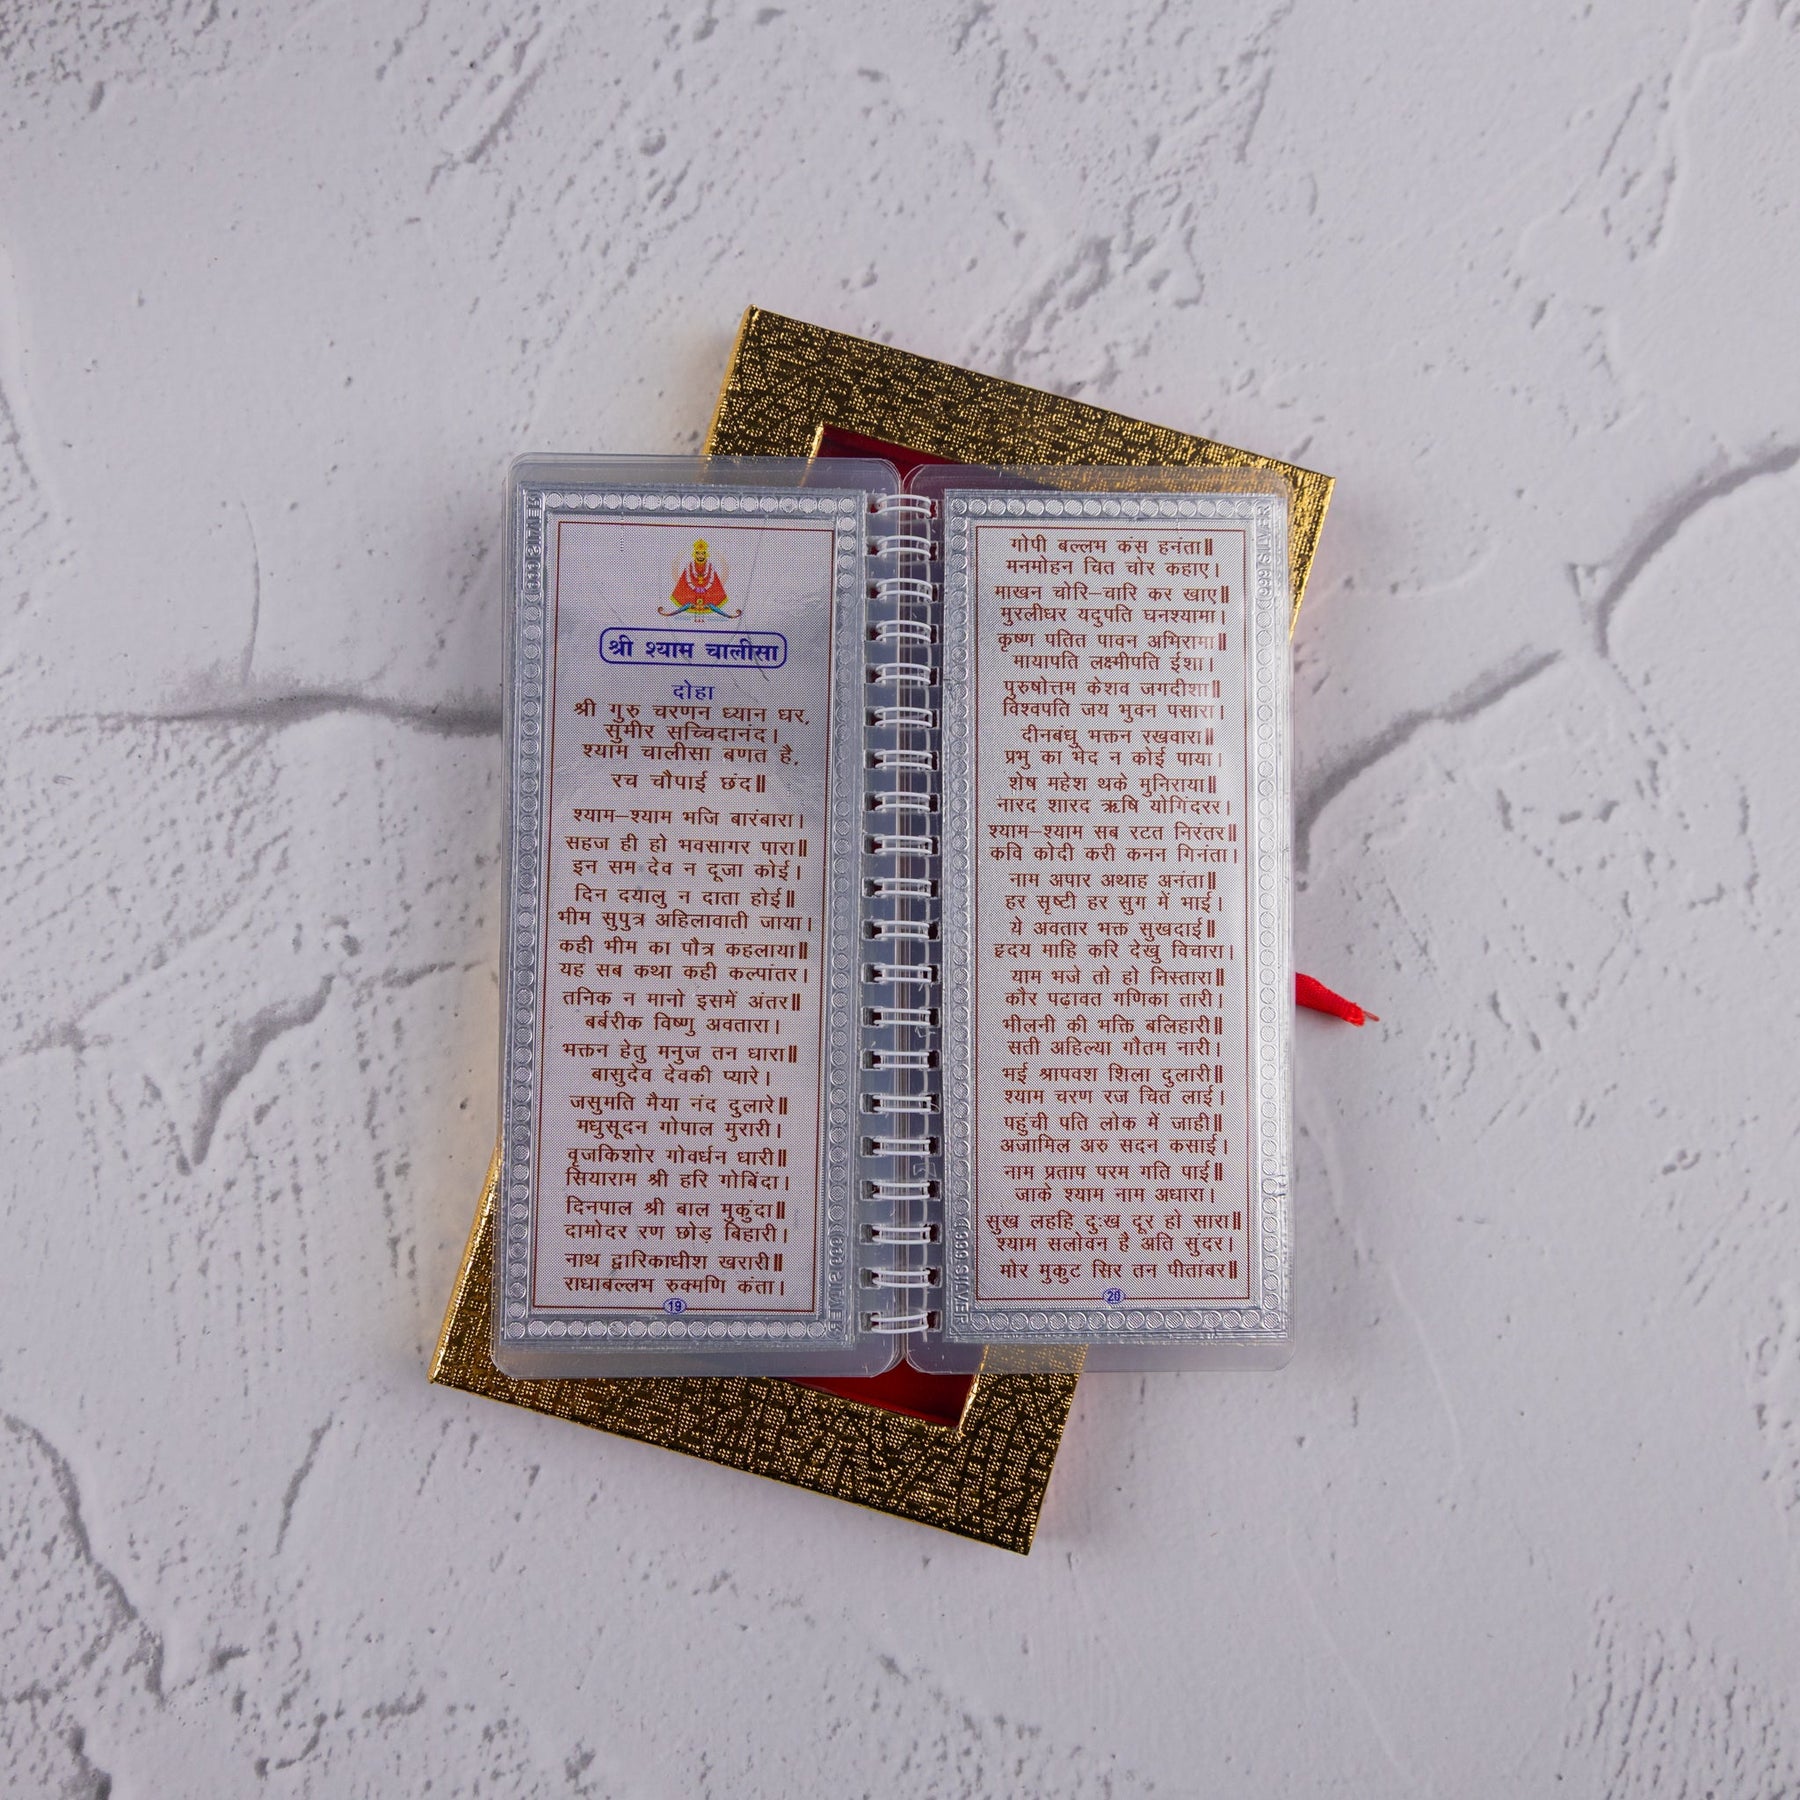 श्री श्याम चालीसा
दोहा
श्री गुरु चरणन ध्यान धर,
सुमीर सच्चिदानंद।
श्याम चालीसा बणत है,
रच चौपाई छंद॥
श्याम–श्याम भजि बारंबारा।
सहज ही हो भवसागर पारा॥
इन सम देव न दूजा कोई।
दिन दयालु न दाता होई॥
भीम सुपुत्र अहिलावाती जाया।
कही भीम का पौत्र कहलाया॥
यह सब कथा कही कल्पांतर।
तनिक न मानो इसमें अंतर॥
बर्बरीक विष्णु अवतारा।
भक्तन हेतु मनुज तन धारा॥
बासुदेव देवकी प्यारे।
जसुमति मैया नंद दुलारे॥
मधुसूदन गोपाल मुरारी।
वृजकिशोर गोवर्धन धारी॥
सियाराम श्री हरि गोबिंदा।
दिनपाल श्री बाल मुकुंदा॥
दामोदर रण छोड़ बिहारी।
नाथ द्वारिकाधीश खरारी॥
राधाबल्लभ रुक्मणि कंता।
19
गोपी बल्लभ कंस हनंता॥
मनमोहन चित चोर कहाए।
माखन चोरि–चारि कर खाए॥
मुरलीधर यदुपति घनश्यामा।
कृष्ण पतित पावन अभिरामा॥
मायापति लक्ष्मीपति ईशा।
पुरुषोत्तम केशव जगदीशा॥
विश्वपति जय भुवन पसारा।
दीनबंधु भक्तन रखवारा॥
प्रभु का भेद न कोई पाया।
शेष महेश थके मुनिराया॥
नारद शारद ऋषि योगिंदरर।
श्याम–श्याम सब रटत निरंतर॥
कवि कोदी करी कनन गिनंता।
नाम अपार अथाह अनंता॥
हर सृष्टी हर सुग में भाई।
ये अवतार भक्त सुखदाई॥
हृदय माहि करि देखु विचारा।
याम भजे तो हो निस्तारा॥
कौर पढ़ावत गणिका तारी।
भीलनी की भक्ति बलिहारी॥
सती अहिल्या गौतम नारी।
भई श्रापवश शिला दुलारी॥
श्याम चरण रज चित लाई।
पहुंची पति लोक में जाही॥
अजामिल अरु सदन कसाई।
नाम प्रताप परम गति पाई॥
जाके श्याम नाम अधारा।
सुख लहहि दुःख दूर हो सारा॥
श्याम सलोवन है अति सुंदर।
मोर मुकुट सिर तन पीताबर॥
20
999 SILVER
999 SILVER
999 SILVER